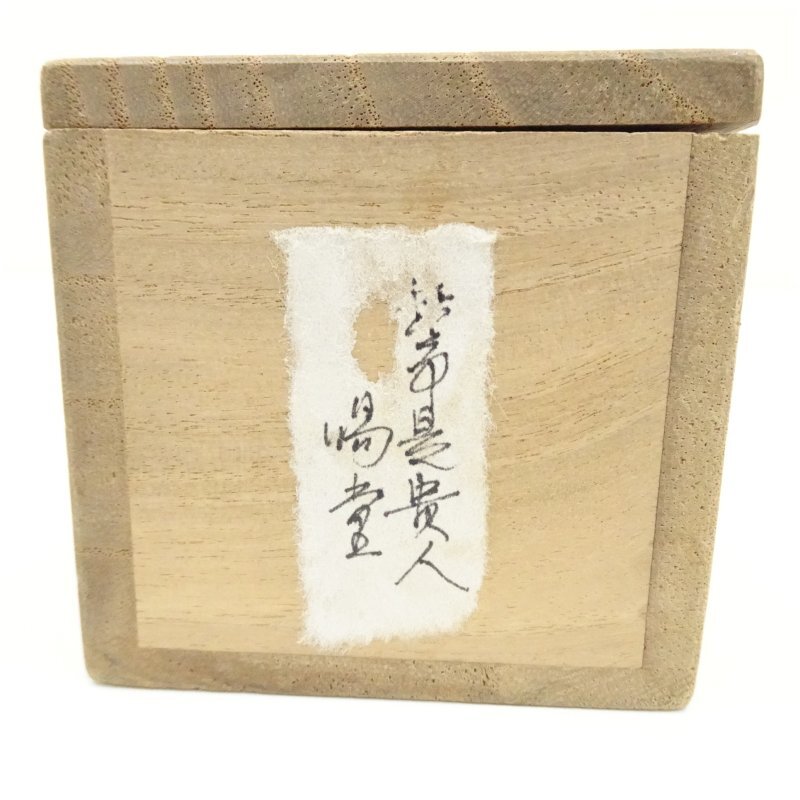 無事是貴人
堂